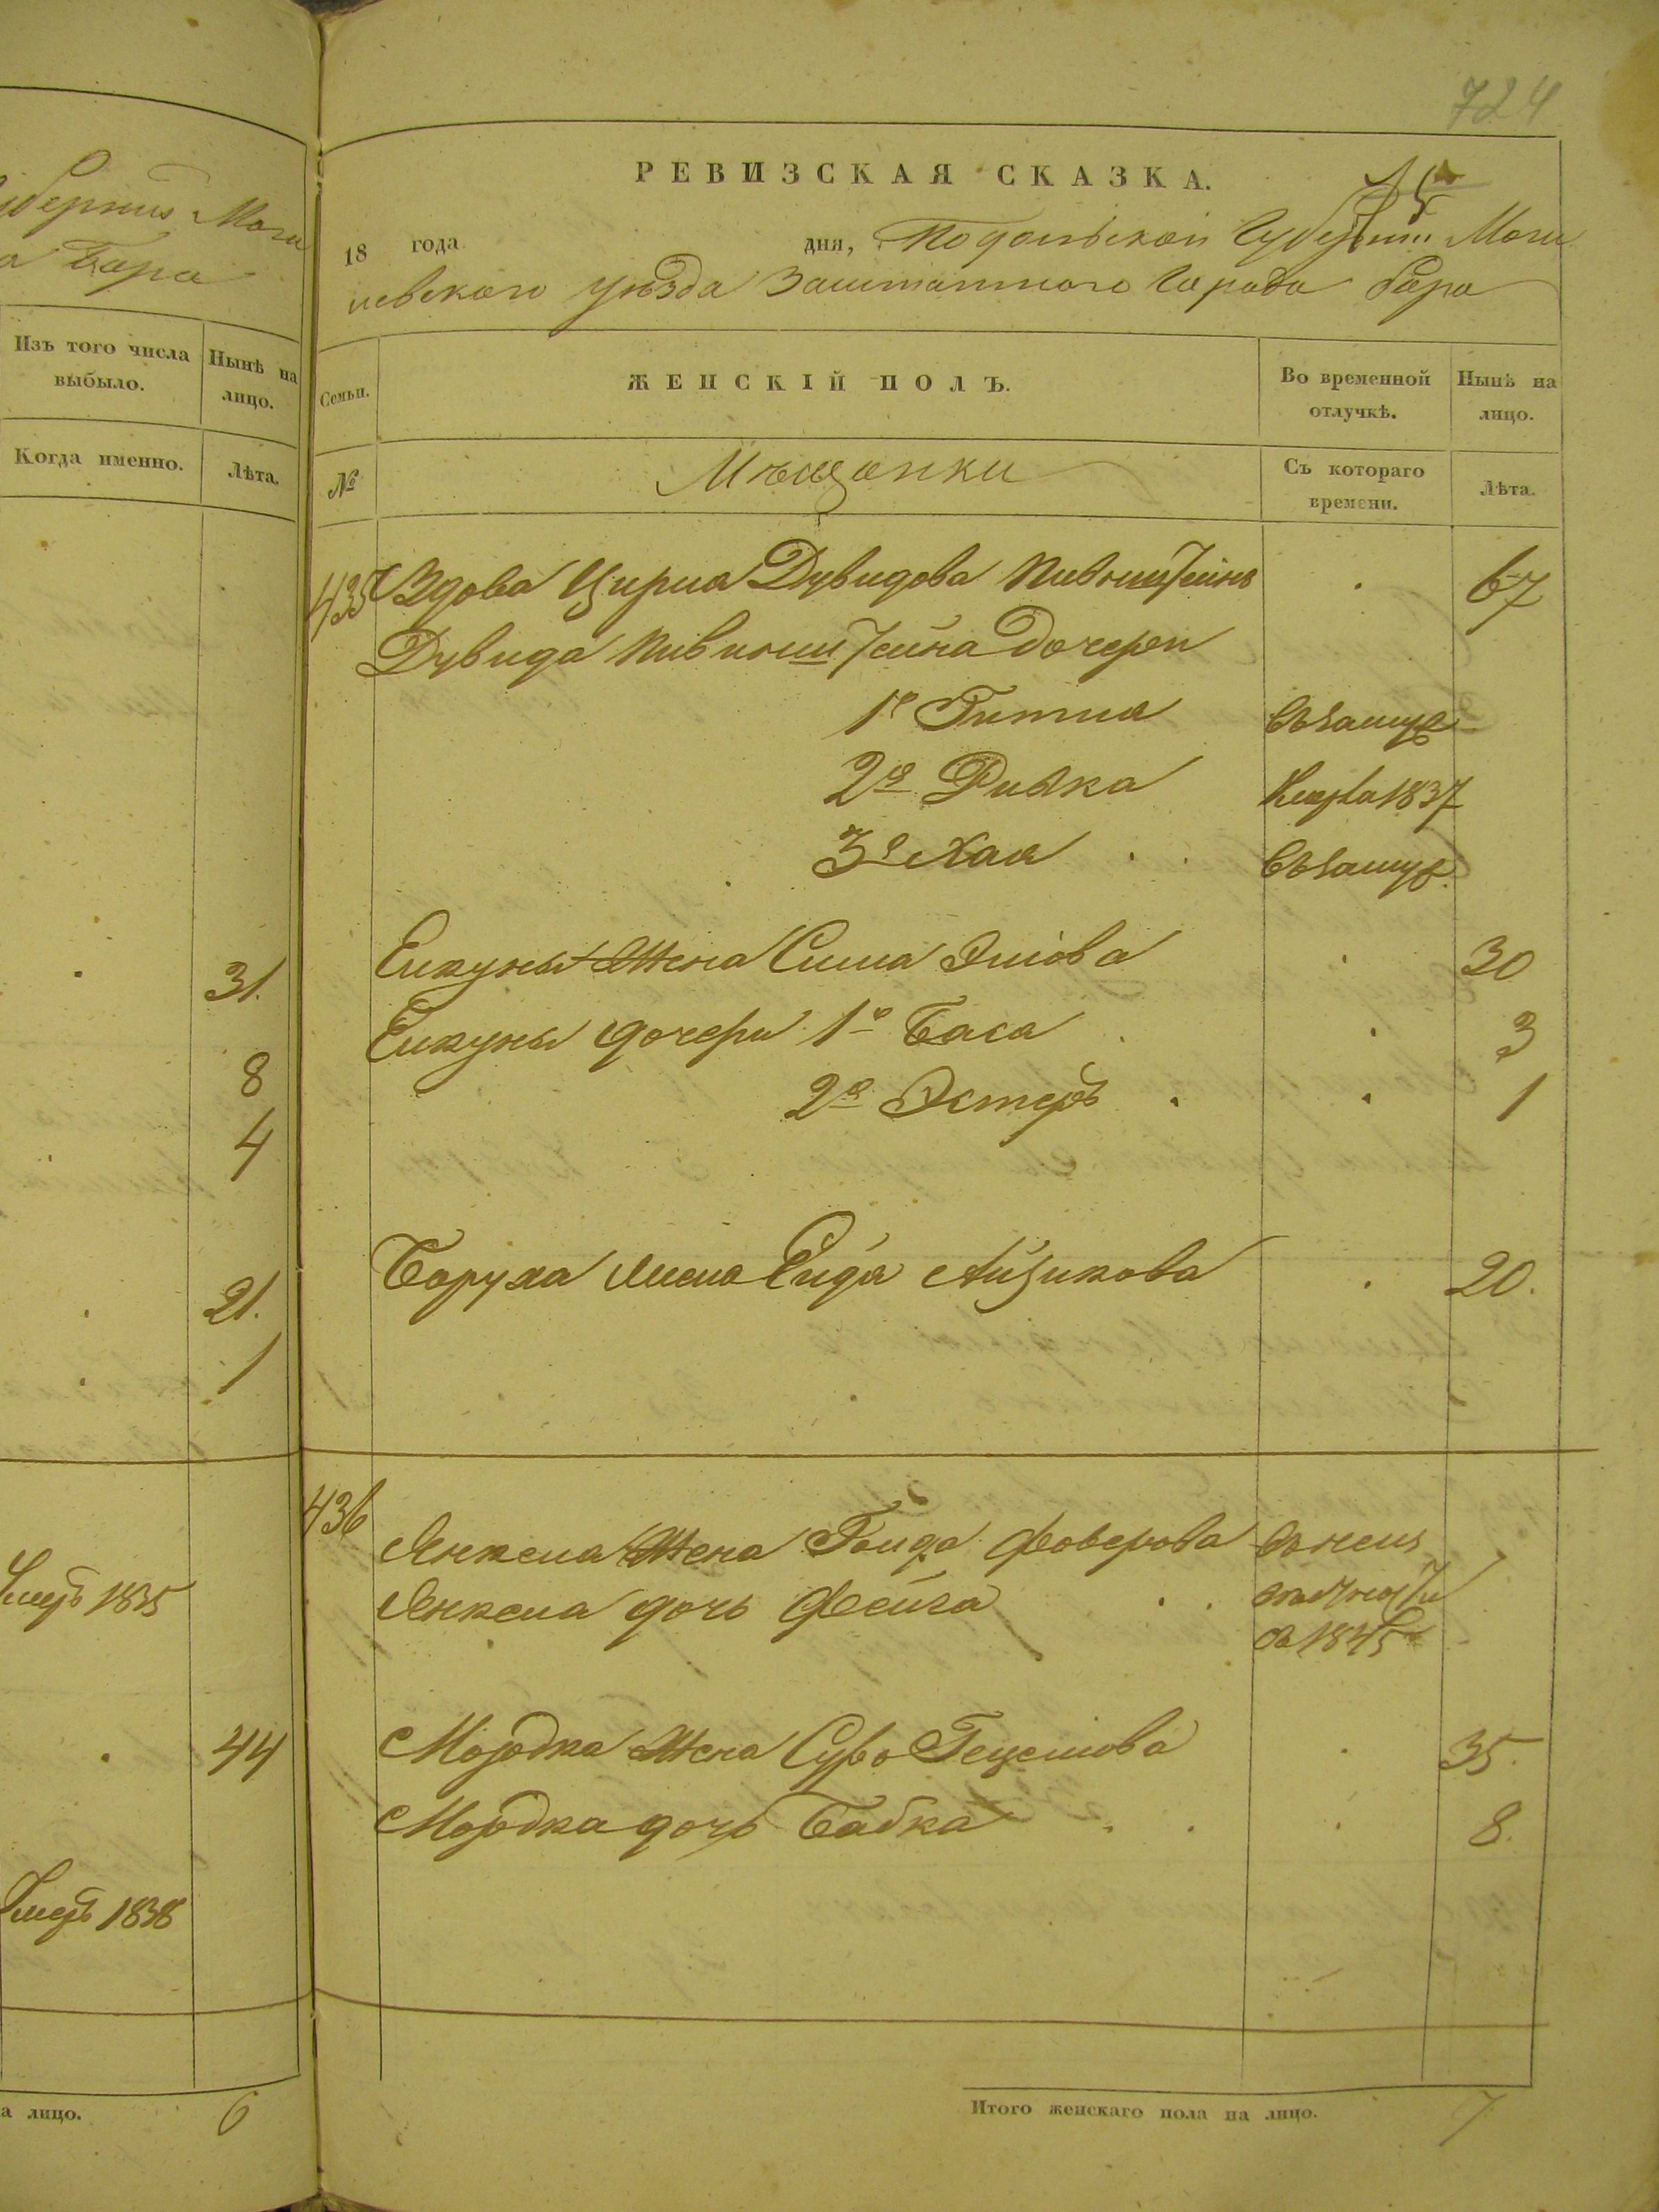 уберніи Моги
а Бара
Изъ того числа выбыло.
Нынѣ на лицо.
Когда именно.
Лѣта.
31.
8
4
21.
1
умеръ 1835
44
умеръ 1838
а лицо.
6
724
РЕВИЗСКАЯ СКАЗКА.
18 года дня, Подольской Губерніи Моги
левского уѣзда Заштатного Города Бара
Семьи.
ЖЕНСКІЙ ПОЛЪ.
Во временной отлучкѣ.
Нынѣ на лицо.
№
Мѣщанки
Съ котораго времени.
Лѣта.
435 Вдова Цирля Дувидова 67
Дувида дочери
1я Гитля Въ замуж
2я Ривка Умерла 1837
3я Хая Въ замуж.
жена Сима 30
дочери 1я Бася 3
2я Эстеръ 1
Баруха жена Айзикова 20.
436
Янкеля жена
Янкеля дочь Фейга
1845
Мордка жена Сура 35.
Мордка дочь Бабка 8.
Итого женскаго пола на лицо. 7